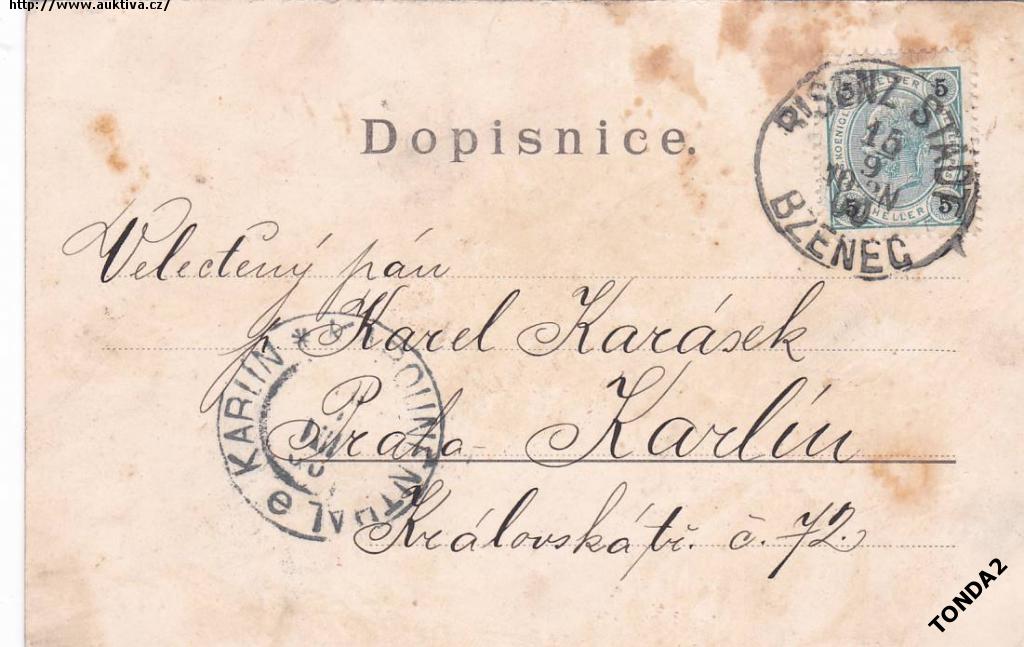 http://www.auktiva.cz/
Dopisnice.
BISENZ STADT
15
9
BZENEC
5 5
HELLER
5 5
Velectený pán
p Karel Karásek
Praha - Karlín
Královská tř. č. 72.
KARLIN * KAROLINENTHAL
TONDA2